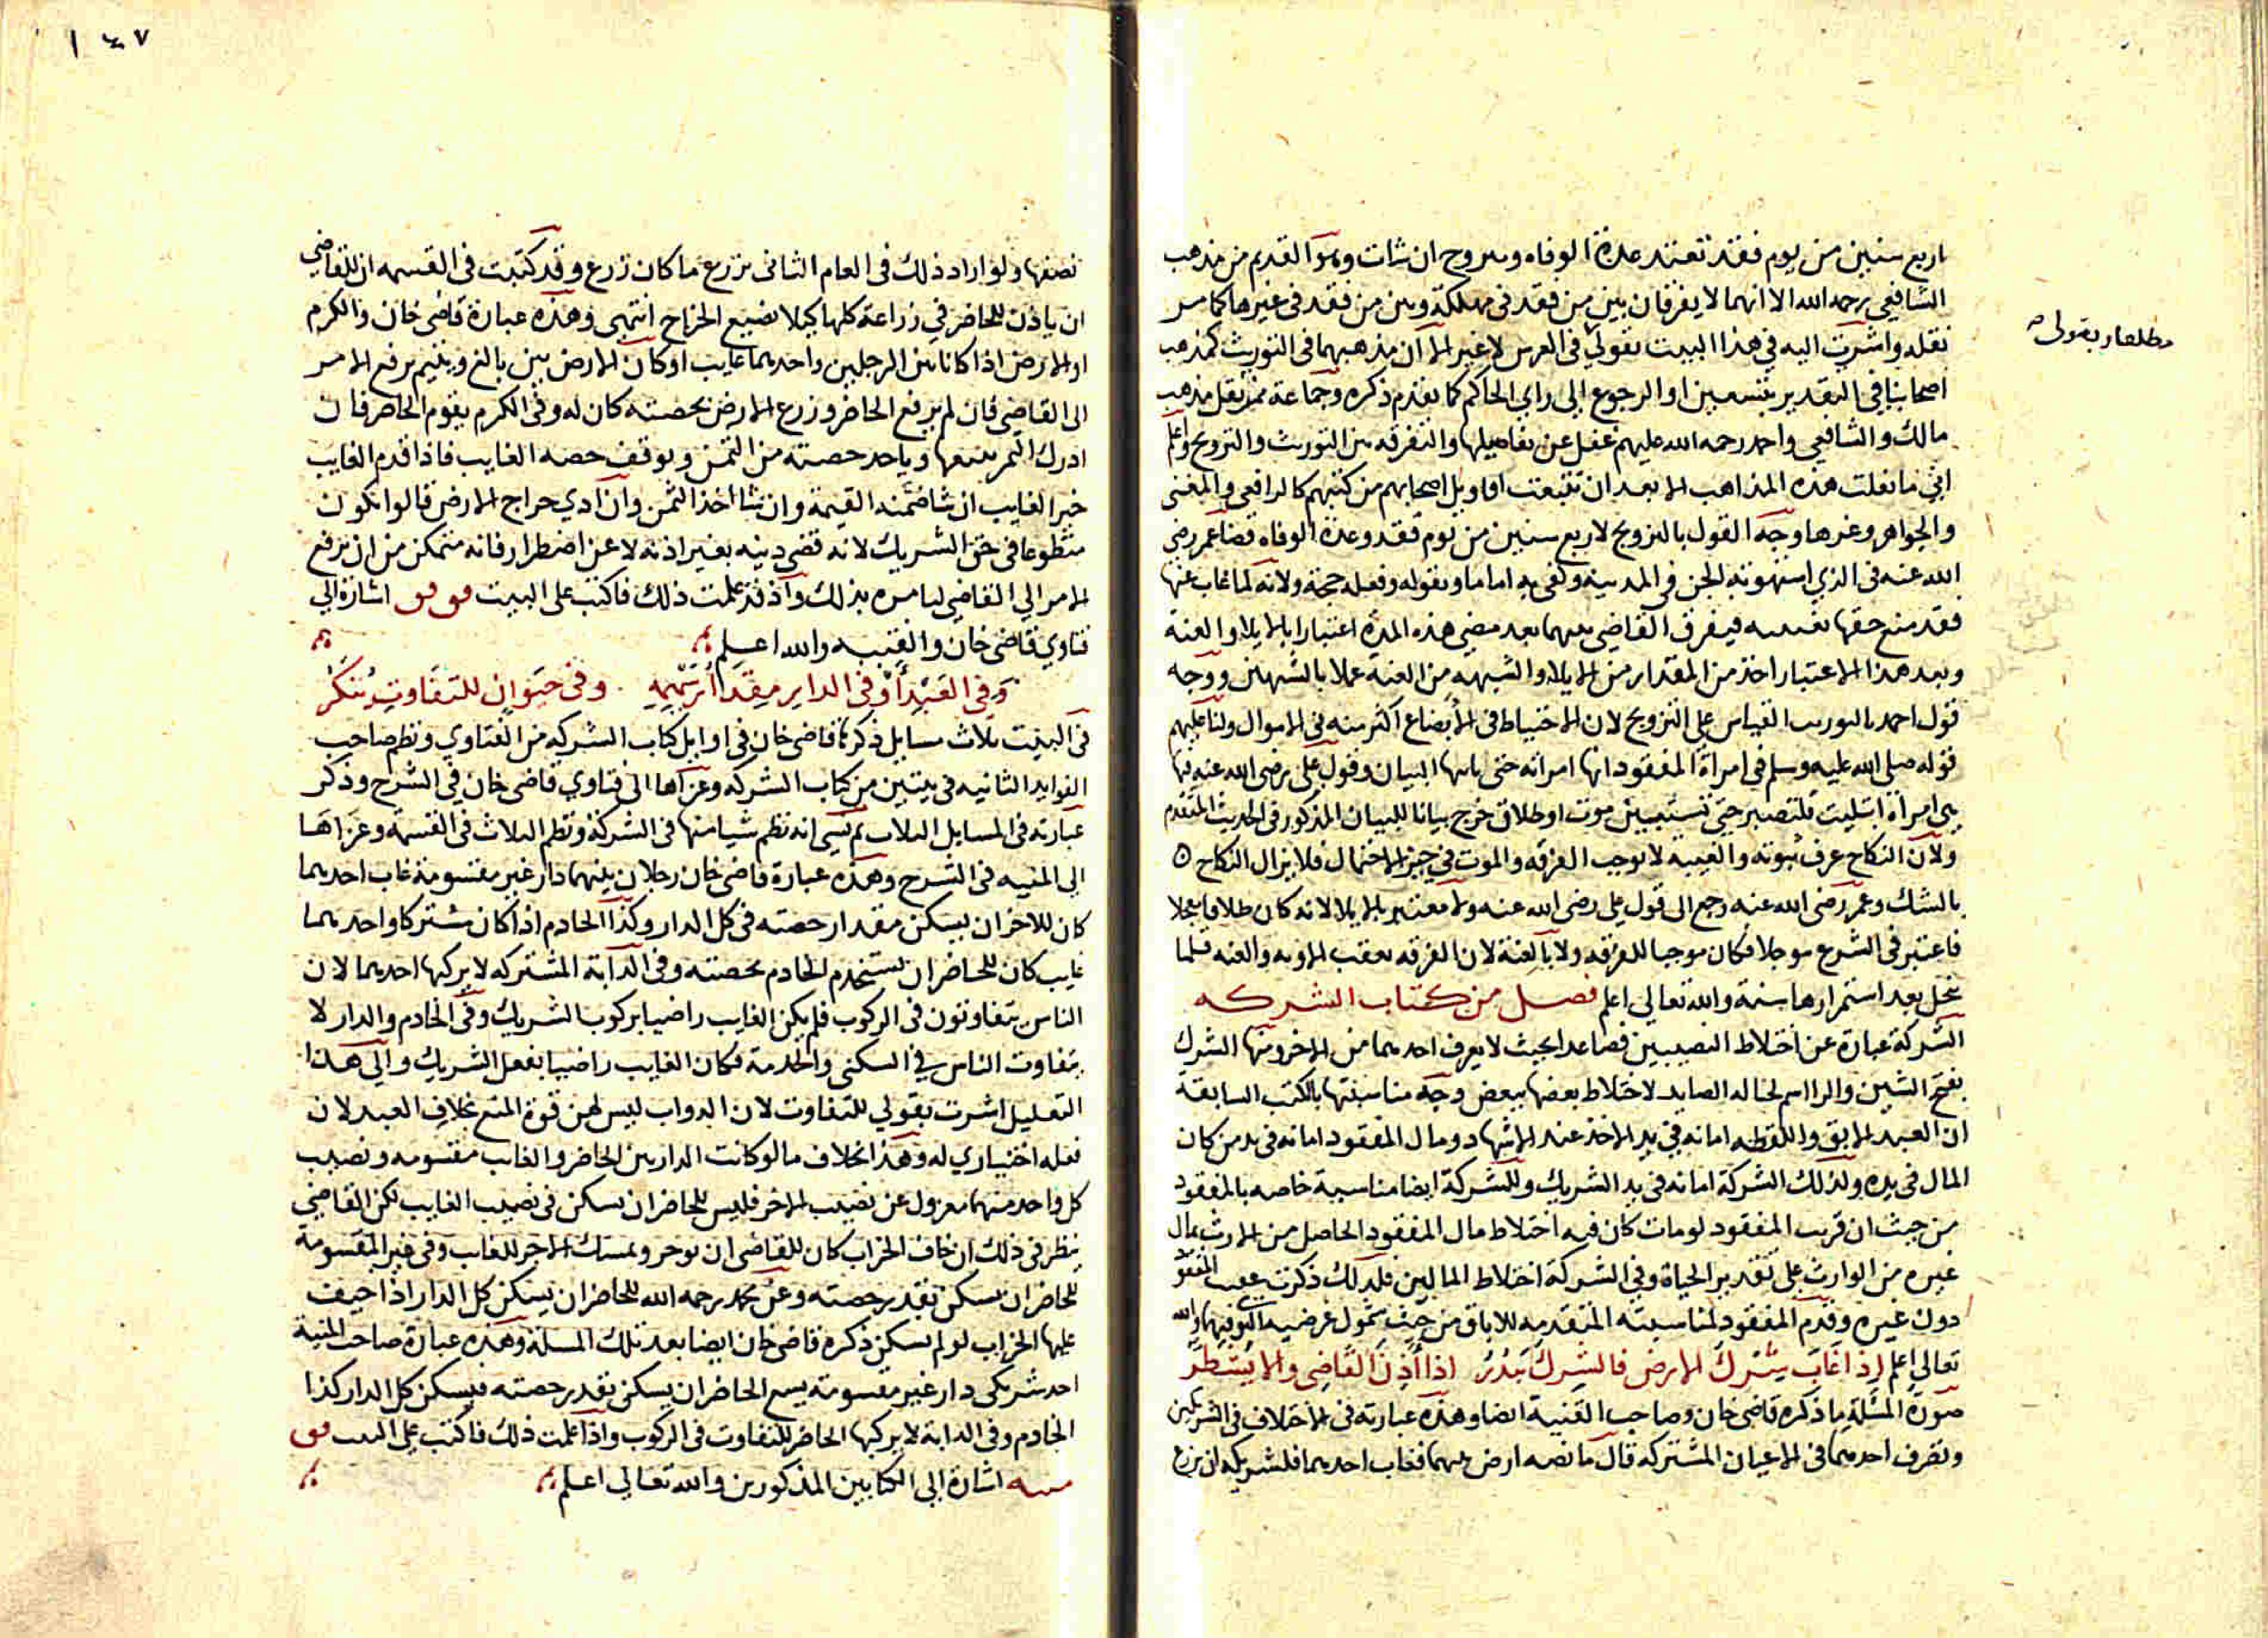 اربع سنين من يوم فقد تعتد عدة الوفاه وتتزوج ان شات وهو القديم من مذهب
الشافعي رحمه الله الا انهما لا يفرقان بين من فقد في مهلكة وبين من فقد في غيرها كما مر
نقله واشرت اليه في هذا البيت بقولي في العرس لا غير لان مذهبهما في التوريث كمذهب
اصحابنا في التقدير بتسعين او الرجوع الى راي الحاكم كما تقدم ذكره وجماعة ممن نقل مذهب
مالك والشافعي واحمد رحمه الله عليهم غفل عن تفاصيلها والتفرقه بين التوريث والتزويج واعلم
اني ما نقلت هذه المذاهب الا بعد ان تتبعت اقاويل اصحابهم من كتبهم كالرافعي والمغني
والجواهر وغيرها وجه القول بالتزويج لاربع سنين من يوم فقد وعدة الوفاه قضا عمر رضي
الله عنه في الذي استهوته الجن في المدينه وكفى به اماما وبقوله وفعله حجة ولانه لما غاب عنها
فقد منع حقها بغيبته فيفرق القاضي بينهما بعد مضي هذه المدة اعتبارا بالايلا والعنة
وبعد هذا الاعتبار اخذ من المقدار من الايلا والشبهه من العنة عملا بالشبهين ووجه
قول احمد بالتوريث القياس على التزويج لان الاحتياط في الابضاع اكثر منه في الاموال ولنا عليهم
قوله صلى الله عليه وسلم في امراة المفقود انها امراته حتى ياتيها البيان وقول علي رضي الله عنه فيها
هي امراة ابتليت فلتصبر حتى تستبين موت او طلاق خرج بيانا للبيان المذكور في الحديث المتقدم
ولان النكاح عرف ثبوته والغيبة لا توجب الفرقه والموت في حيز الاحتمال فلا يزال النكاح
بالشك وعمر رضي الله عنه رجع الى قول علي رضي الله عنه ولا معتبر بالايلا لانه كان طلاقا معجلا
فاعتبر في الشرع موجلا فكان موجبا للفرقه ولا بالعنة لان الفرقه تعقب الاوبه والعنه قلما
تنحل بعد استمرارها سنة والله تعالى اعلم فصل من كتاب الشركه
الشركة عبارة عن اختلاط النصيبين فصاعدا بحيث لا يعرف احدهما من الاخر ومنها الشرك
بفتح الشين والرا اسم لحباله الصايد لاختلاط بعضها ببعض وجه مناسبتها بالكتب السابقة
ان العبد الابق واللقطه امانه في يد الاخذ عند الاشهاد ومال المفقود امانه في يد من كان
المال في يده ولذلك الشركة امانه في يد الشريك وللشركة ايضا مناسبة خاصه بالمفقود
من حيث ان قريب المفقود لو مات كان فيه اختلاط مال المفقود الحاصل من الارث بمال
غيره من الوارث على تقدير الحياة وفي الشركة اختلاط المالين فلذلك ذكرت عقب المفقود
دون غيره وقدم المفقود لمناسبته المتقدمه للاباق من حيث شمول عرضية التوى فيهما والله
تعالى اعلم اذا غاب شرك الارض فالشرك يبذر اذا اذن القاضي والا يشطر
صورة المسئلة ما ذكره قاضي خان وصاحب القنية ايضا وهذه عبارته في الاختلاف في الشريكين
وتصرف احدهما في الاعيان المشتركه قال ما نصه ارض بينهما فغاب احدهما فلشريكه ان يزرع
مطلعا وبقولي
١٤٧
نصفها ولو اراد ذلك في العام الثاني يزرع ما كان زرع وقد كتبت في القسمه ان للقاضي
ان ياذن للحاضر في زراعة كلها كيلا يضيع الخراج انتهى وهذه عبارة قاضي خان والكرم
او الارض اذا كانا بين الرجلين واحدهما غايب او كان الارض بين بالغ ويتيم يرفع الامر
الى القاضي فان لم يرفع الحاضر وزرع الارض بحصته كان له وفي الكرم يقوم الحاضر فان
ادرك الثمر يبيعها وياخذ حصته من الثمن ويوقف حصه الغايب فاذا قدم الغايب
خير الغايب ان شا ضمنه القيمة وان شا اخذ الثمن وان ادي خراج الارض قالوا يكون
متطوعا في حق الشريك لانه قضى دينه بغير اذنه لا عن اضطرار فانه متمكن من ان يرفع
الامر الي القاضي ليامره بذلك واذ قد علمت ذلك فاكتب على البيت اشارة الي
فتاوي قاضي خان والقنيه والله اعلم
وفي العبد او في الدار مقدار سهمه وفي حيوان للتفاوت ينكر
في البيت ثلاث مسايل ذكرها قاضي خان في اوايل كتاب الشركه من الفتاوي ونظم صاحب
الفوايد الثانيه في بيتين من كتاب الشركه وعزاها الى فتاوي قاضي خان في الشرح وذكر
عبارته في المسايل الثلاث ثم نسي انه نظم شيا منها في الشركة ونظم الثلاث في القسمة وعزاها
الى المنيه في الشرح وهذه عبارة قاضي خان رجلان بينهما دار غير مقسومة غاب احدهما
كان للاخر ان يسكن مقدار حصته في كل الدار وكذا الخادم اذا كان مشتركا واحدهما
غايب كان للحاضر ان يستخدم الخادم بحصته وفي الدابة المشتركه لا يركبها احدهما لان
الناس يتفاوتون في الركوب فلم يكن الغايب راضيا بركوب الشريك وفي الخادم والدار لا
يتفاوت الناس في السكنى والخدمة فكان الغايب راضيا بفعل الشريك والى هذا
التعليل اشرت بقولي للتفاوت لان الدواب ليس لهن قوة المنع بخلاف العبد لان
فعله اختياري له وهذا بخلاف ما لو كانت الدار بين الحاضر والغايب مقسومه ونصيب
كل واحد منهما معزول عن نصيب الاخر فليس للحاضر ان يسكن في نصيب الغايب لكن القاضي
ينظر في ذلك ان خاف الخراب كان للقاضي ان يوجر ويمسك الاجر للغايب وفي غير المقسومة
للحاضر ان يسكن بقدر حصته وعن محمد رحمه الله للحاضر ان يسكن كل الدار اذا خيف
عليها الخراب لو لم يسكن ذكره قاضي خان ايضا بعد تلك المسلة وهذه عبارة صاحب المنية
احد شريكي دار غير مقسومة يسع الحاضر ان يسكن بقدر حصته فيسكن كل الدار كذا
الخادم وفي الدابة لا يركبها الحاضر للتفاوت في الركوب واذا علمت ذلك فاكتب على البيت
اشارة الى الكتابين المذكورين والله تعالى اعلم